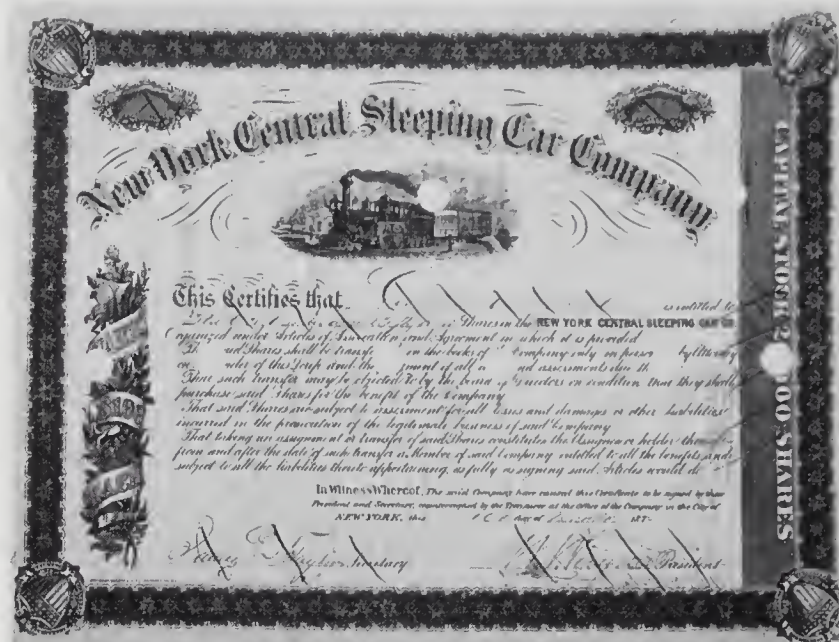 New York Central Sleeping Car Company
This Certifies that
is entitled to
Shares in the NEW YORK CENTRAL SLEEPING CAR CO
Organized under Articles of Association and Agreement in which it is provided
Shares shall be transfe in the books of Company only in person by Attorney
on der of this Scrip and the yment of all nd assessments due th
That such transfer may be objected to by the board of Directors on condition that they shall
purchase said Shares for the benefit of the Company
That said Shares are subject to assessment for all losses and damages or other liabilities
incurred in the prosecution of the legitimate business of said Company
That taking an assignment or transfer of said Shares constitutes the Assignee or holder
from and after the date of such transfer a Member of said Company entitled to all the benefits and
subject to all the liabilities thereto appertaining, as fully as signing said Articles would do
In Witness Whereof, The said Company have caused this Certificate to be signed by their
President and Secretary, countersigned by the Treasurer at the Office of the Company in the City of
NEW YORK, this day of 187
Secretary
President
CAPITAL STOCK 2 00 SHARES